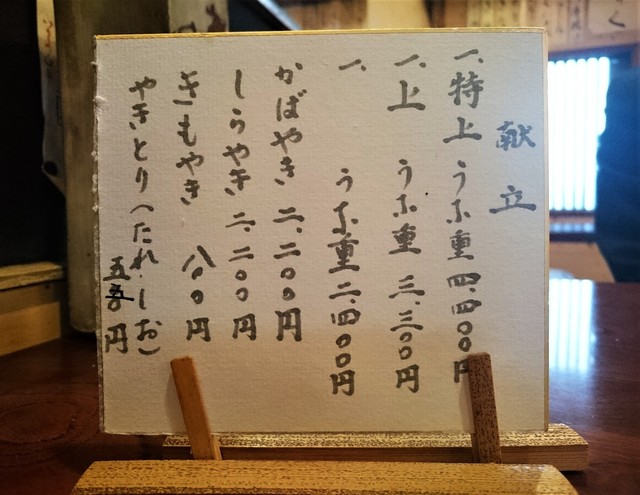 献立
一、特上 うな重 四、四〇〇円
一、上 うな重 三、三〇〇円
一、 うな重 二、四〇〇円
かばやき 二、二〇〇円
しらやき 二、二〇〇円
きもやき 八〇〇円
やきとり(たれ・しお)
五五〇円